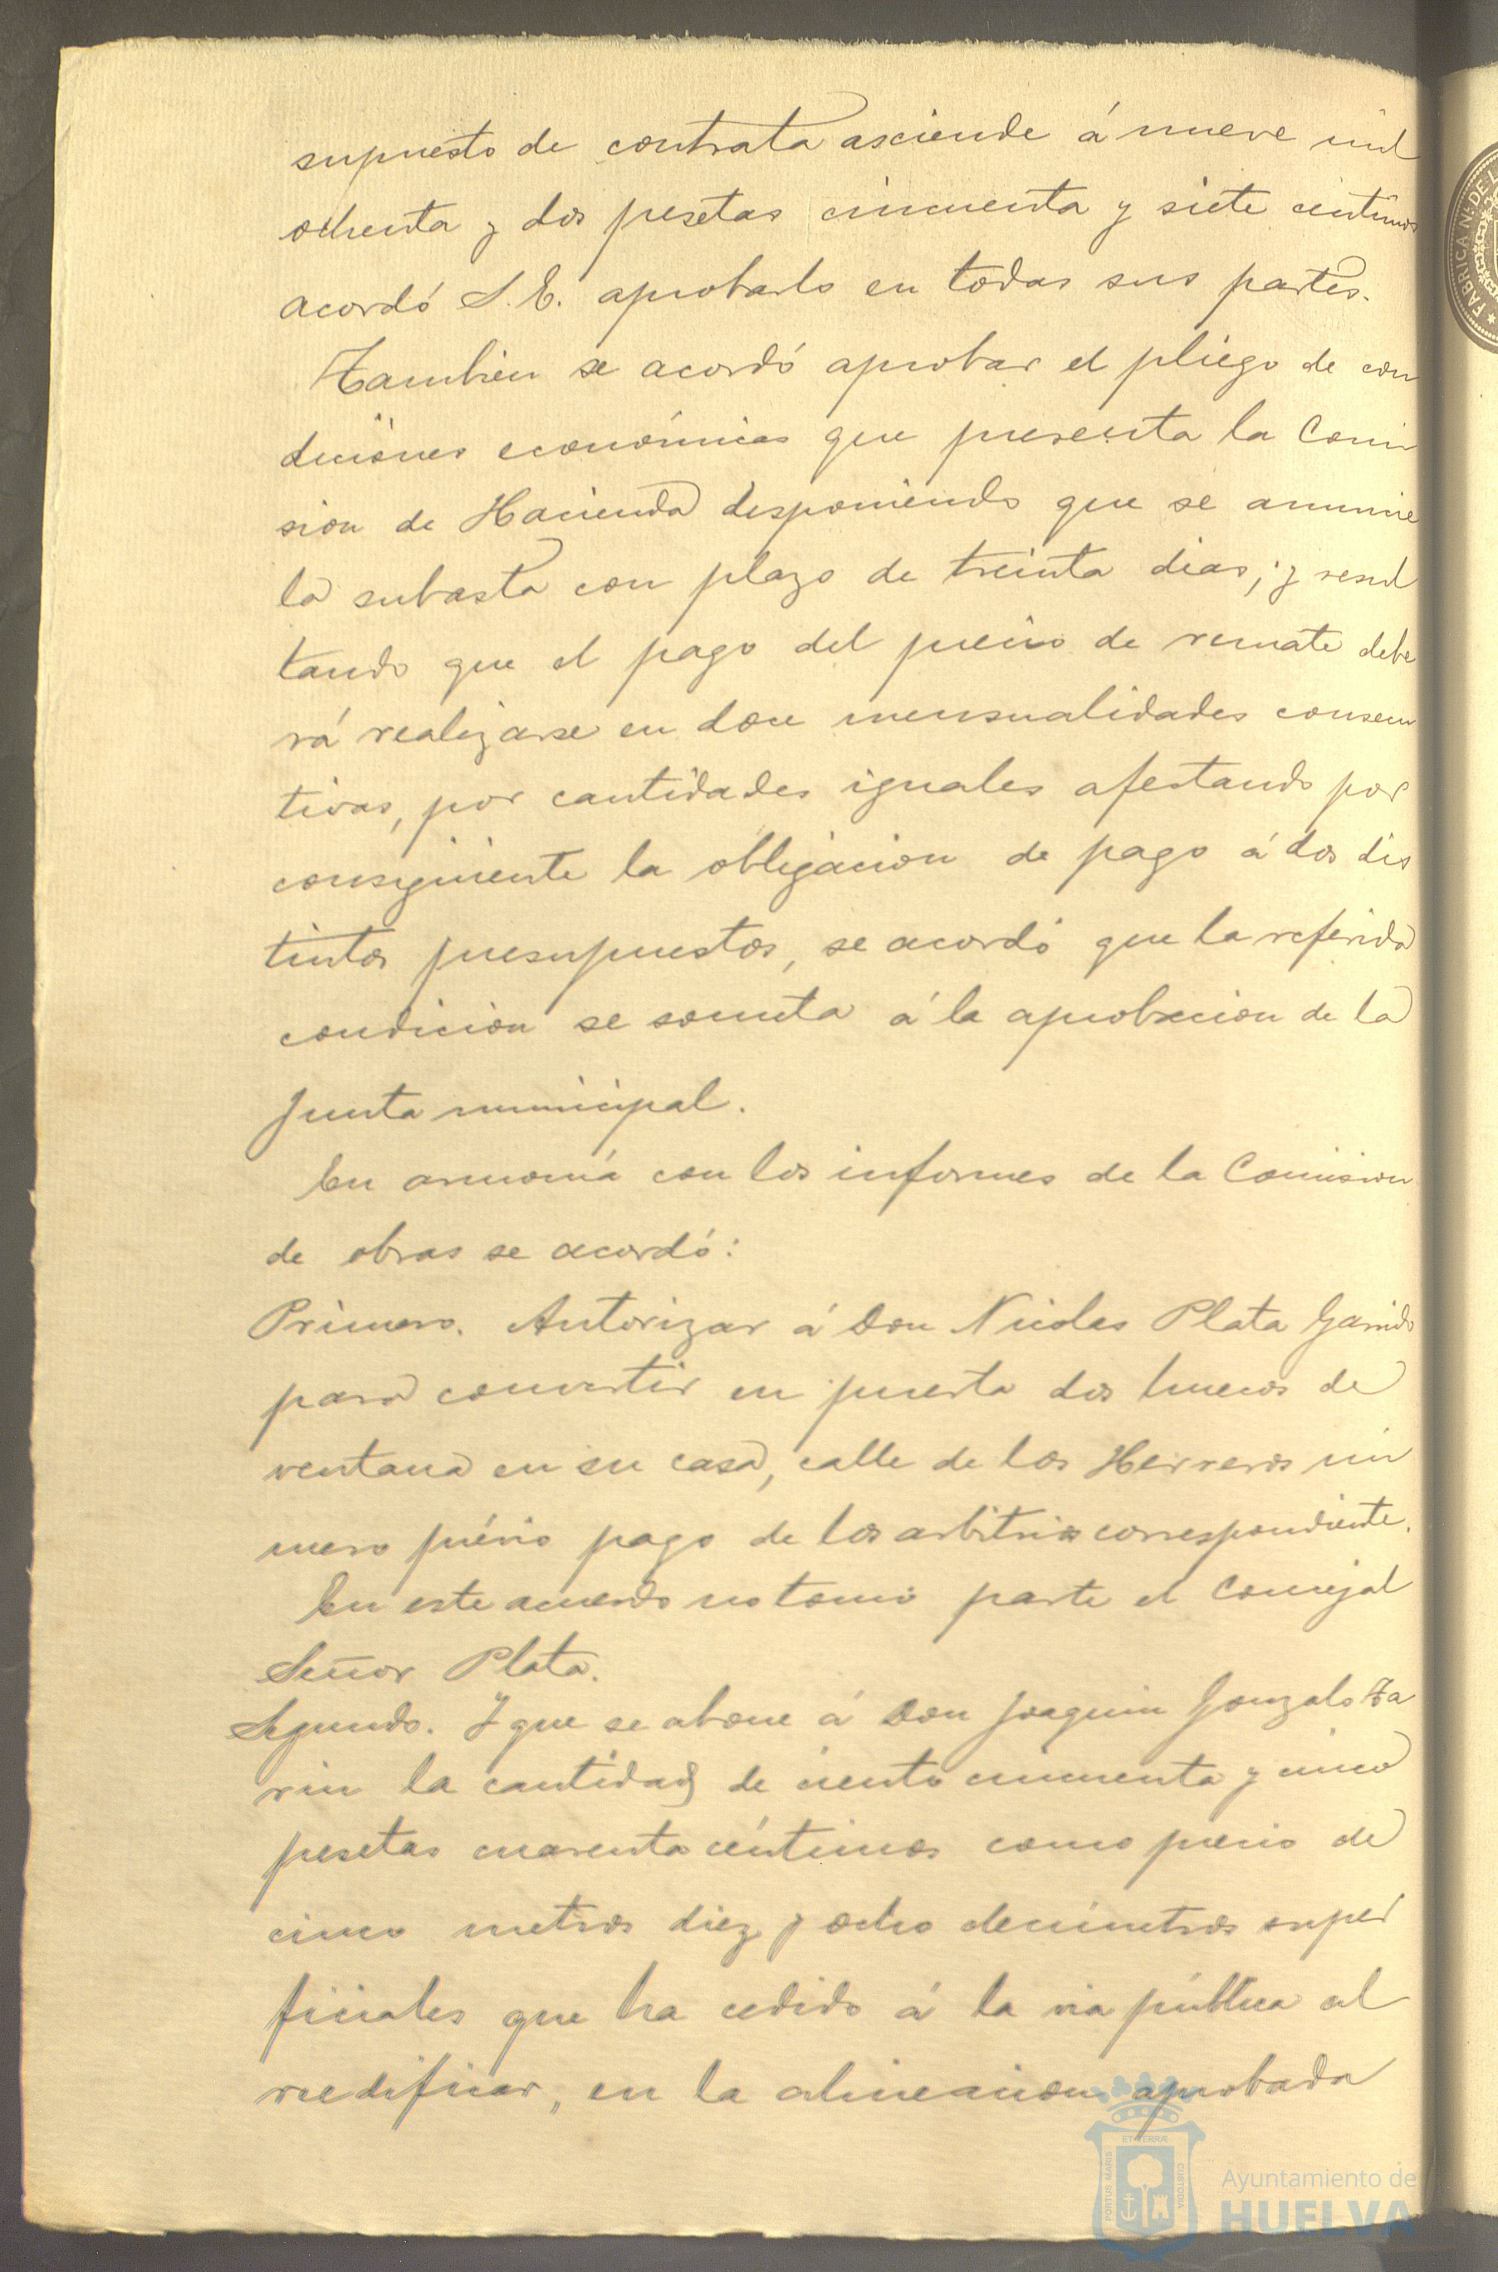 supuesto de contrata asciende á nueve mil
ochenta y dos pesetas cincuenta y siete centimos
acordó S.E. aprobarlo en todas sus partes.
Tambien se acordó aprobar el pliego de con
diciones económicas que presenta la Comi
sion de Hacienda desponiendo que se anuncie
la subasta con plazo de treinta dias; y resul
tando que el pago del precio de remate debe
rá realizarse en doce mensualidades consecu
tivas, por cantidades iguales afectando por
consiguiente la obligacion de pago á dos dis
tintos presupuestos, se acordó que la referida
condicion se someta á la aprobacion de la
Junta municipal.
En armonía con los informes de la Comision
de obras se acordó:
Primero. Autorizar á Don Nicolas Plata Garrido
para convertir en puerta dos huecos de
ventana en su casa, calle de los Herreros nú
mero prévio pago de los arbitrios correspondiente.
En este acuerdo no tomó parte el Concejal
Señor Plata.
Segundo. Y que se abone á Don Joaquin Gonzalo Ta
rin la cantidad de ciento cincuenta y cinco
pesetas cuarenta céntimos como precio de
cinco metros diez y ocho decimetros super
ficiales que ha cedido á la via pública al
reedificar, en la alineacion aprobada
FABRICA Nal DE
PORTUS MARIS
ET TERRÆ
CUSTODIA
Ayuntamiento de
HUELVA